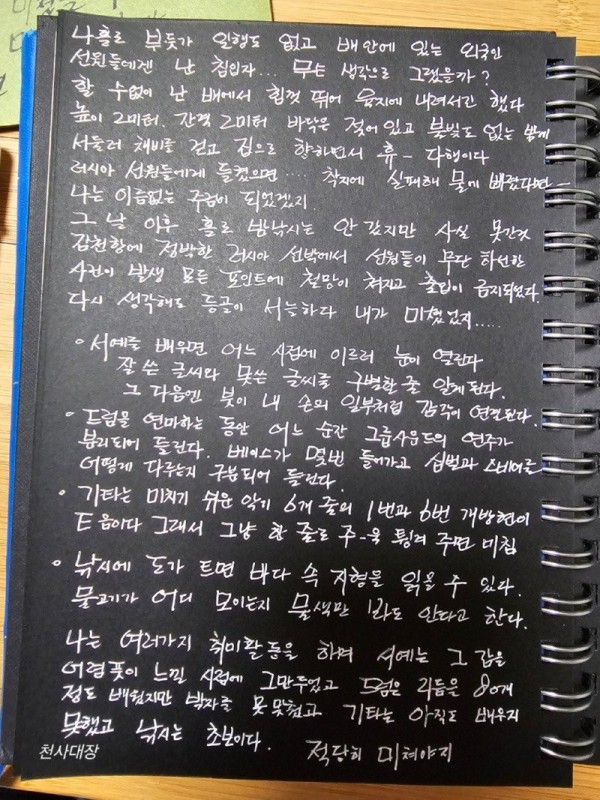 나홀로 부둣가 일행도 없고 배안에 있는 외국인
선원들에겐 난 침입자... 무슨 생각으로 그랬을까?
할 수 없이 난 배에서 힘껏 뛰어 육지에 내려서긴 했다
높이 2미터. 간격 2미터 바닥은 젖어있고 불빛도 없는 밤에
서둘러 채비를 걷고 집으로 향하면서 휴- 다행이다
러시아 선원들에게 들켰으면.... 착지에 실패해 물에 빠졌다면-
나는 이름없는 주검이 되었겠지
그 날 이후 홀로 밤낚시는 안 갔지만 사실 못간것
감천항에 정박한 러시아 선박에서 선원들이 무단 하선한
사건이 발생 모든 포인트에 철망이 쳐지고 출입이 금지되었다.
다시 생각해도 등골이 서늘하다 내가 미쳤었지.....
• 서예를 배우면 어느 시점에 이르러 눈이 열린다
잘 쓴 글씨와 못쓴 글씨를 구별할 줄 알게된다.
그 다음엔 붓이 내 손의 일부처럼 감각이 연결된다.
• 드럼을 연마하는 동안 어느 순간 그룹사운드의 연주가
분리되어 들린다. 베이스가 몇번 들어가고 심벌과 스네어를
어떻게 다루는지 구분되어 들린다.
• 기타는 미치기 쉬운 악기 6개 줄의 1번과 6번 개방현이
E음이다 그래서 그냥 한 줄로 주-욱 튕겨 주면 미침
• 낚시에 도가 트면 바다 속 지형을 읽을 수 있다.
물고기가 어디 모이는지 물색만 봐도 안다고 한다.
나는 여러가지 취미활동을 하며 서예는 그 감을
어렴풋이 느낄 시점에 그만두었고 드럼은 리듬을 80개
정도 배웠지만 박자를 못 맞췄고 기타는 아직도 배우지
못했고 낚시는 초보이다. 적당히 미쳐야지
천사대장